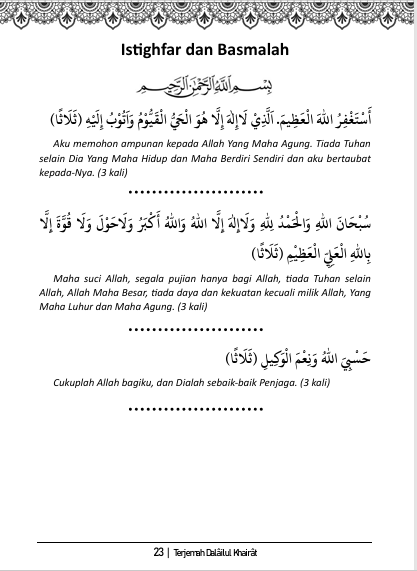 Istighfar dan Basmalah
بِسْمِ اللهِ الرَّحْمٰنِ الرَّحِيْمِ
أَسْتَغْفِرُ اللهَ الْعَظِيمَ. اَلَّذِيْ لَاإِلٰهَ إِلَّا هُوَ الْحَيُّ الْقَيُّوْمُ وَأَتُوْبُ إِلَيْهِ (ثَلَاثًا)
Aku memohon ampunan kepada Allah Yang Maha Agung. Tiada Tuhan
selain Dia Yang Maha Hidup dan Maha Berdiri Sendiri dan aku bertaubat
kepada-Nya. (3 kali)
سُبْحَانَ اللهِ وَالْحَمْدُ لِلهِ وَلَاإِلٰهَ إِلَّا اللهُ وَاللهُ أَكْبَرُ وَلَاحَوْلَ وَلَا قُوَّةَ إِلَّا
بِاللهِ الْعَلِيِّ الْعَظِيْمِ (ثَلَاثًا)
Maha suci Allah, segala pujian hanya bagi Allah, tiada Tuhan selain
Allah, Allah Maha Besar, tiada daya dan kekuatan kecuali milik Allah, Yang
Maha Luhur dan Maha Agung. (3 kali)
حَسْبِيَ اللهُ وَنِعْمَ الْوَكِيلِ (ثَلَاثًا)
Cukuplah Allah bagiku, dan Dialah sebaik-baik Penjaga. (3 kali)
23 | Terjemah Dalâilul Khairât